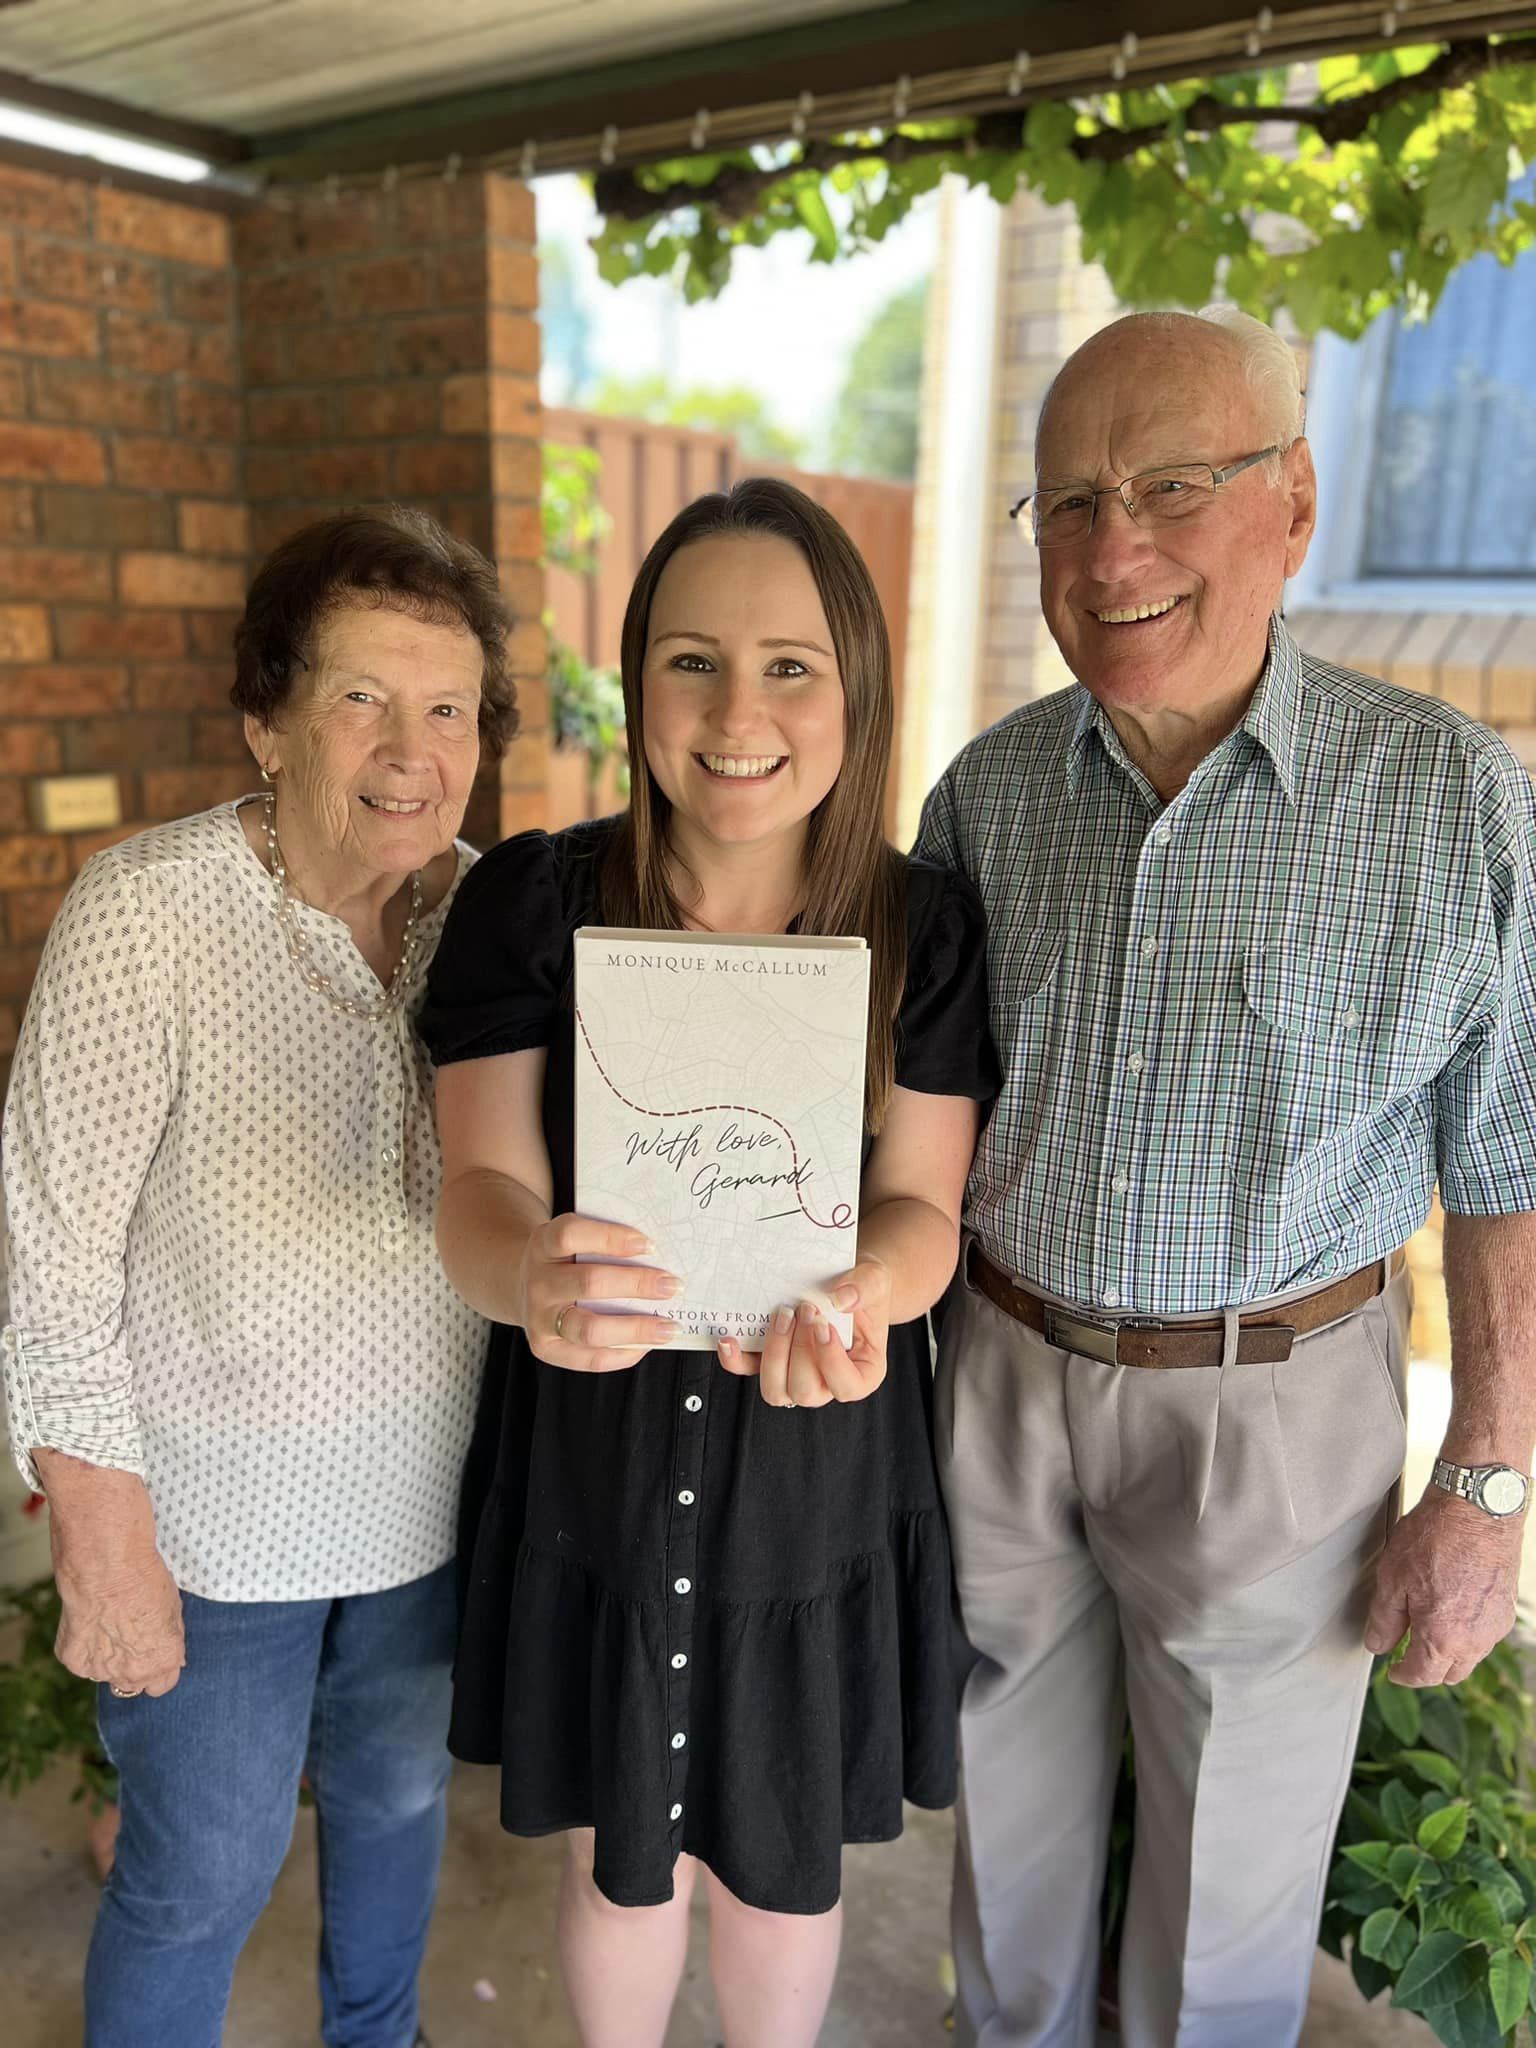 MONIQUE McCALLUM
With love,
Gerard
A STORY FROM
TO